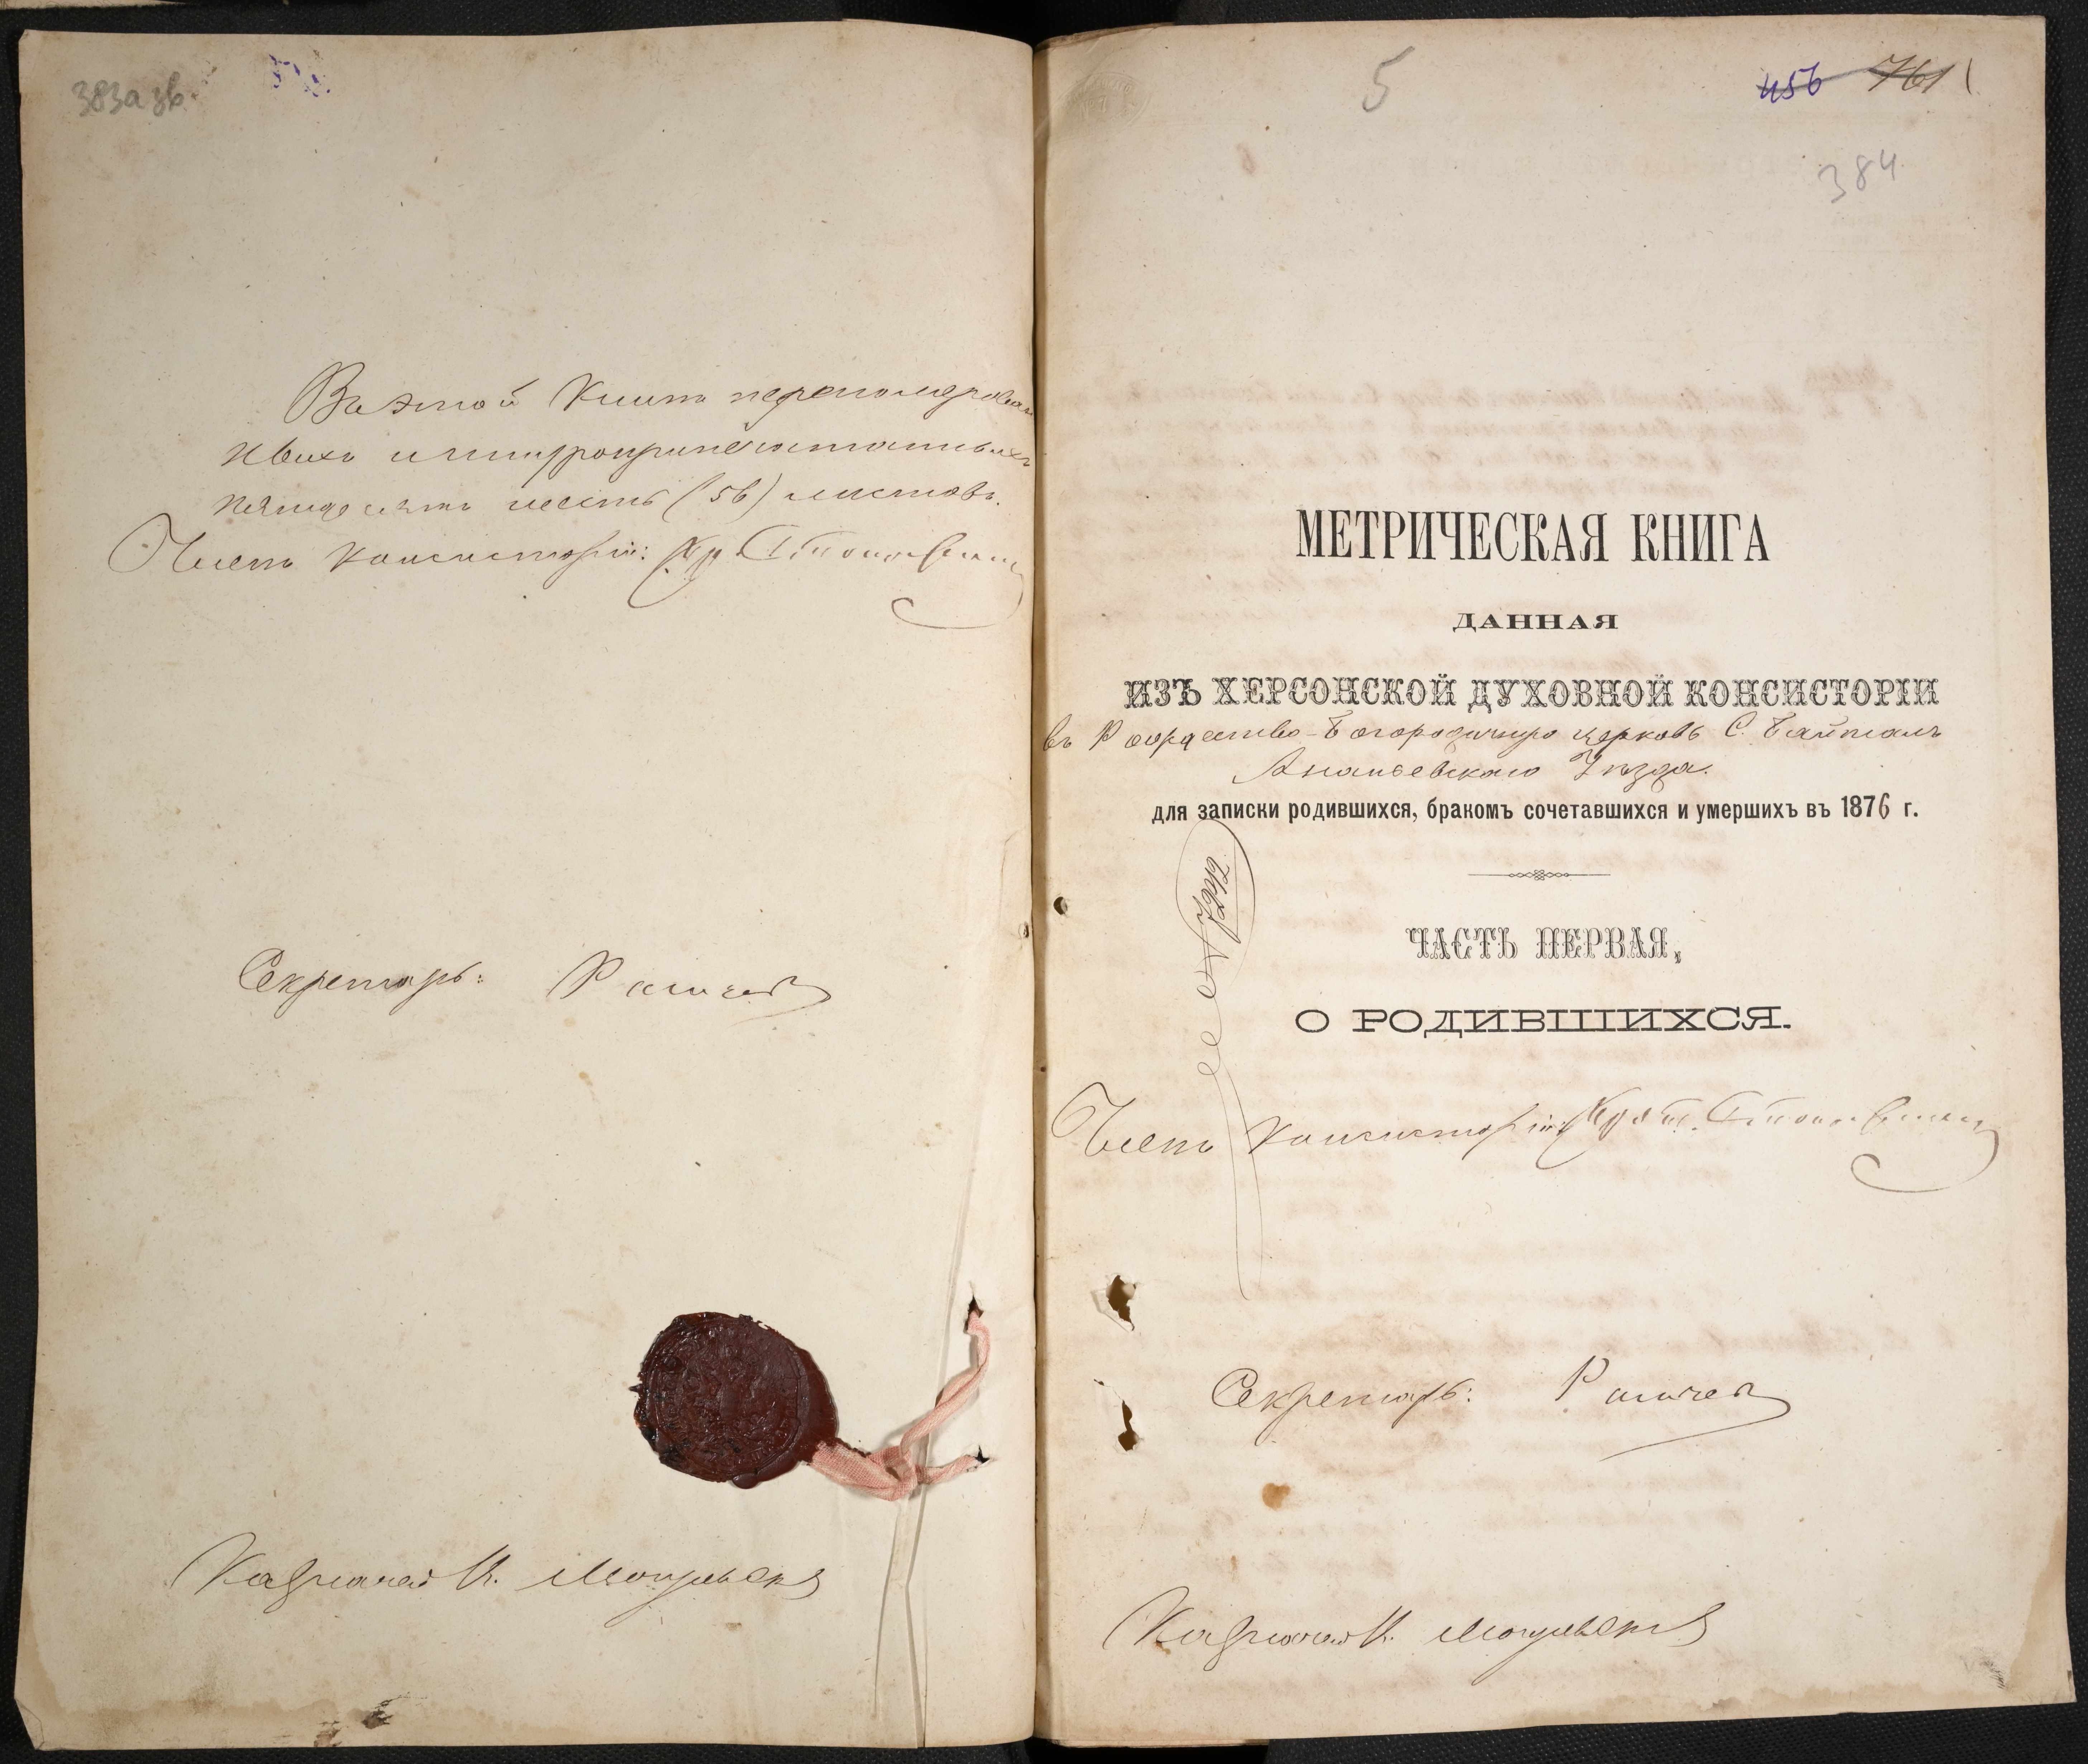 383а зв.
Въ этой Книгѣ перенумерован
ныхъ и шнуроприпечатанныхъ
пятьдесятъ шесть (56) листовъ.
Членъ Консисторіи:
Секретарь:
Казначей
5
456 761
384
МЕТРИЧЕСКАЯ КНИГА
ДАННАЯ
ИЗЪ ХЕРСОНСКОЙ ДУХОВНОЙ КОНСИСТОРІИ
въ Рождество-Богородичную церковь С. Байталъ
Ананьевскаго Уѣзда.
для записки родившихся, бракомъ сочетавшихся и умершихъ въ 1876 г.
ЧАСТЬ ПЕРВАЯ,
О РОДИВШИХСЯ.
Членъ Консисторіи: Прот.
Секретарь:
Казначей